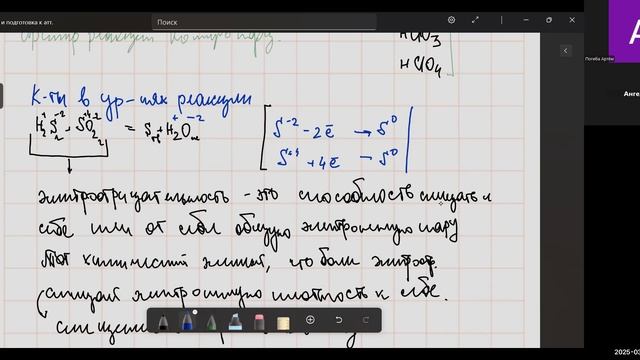 и подготовка к атт.
Поиск
Погиба Артём
HClO3
HClO4
К-ты в ур-иях реакции
H2S + SO2 = S + H2O
S-2 - 2ē → S0
S+4 + 4ē → S0
электроотрицательность - это способность смещать к
себе или от себя общую электронную пару
Тот химический элемент, что более электроотр.
смещает электронную плотность к себе.
Анге
2025-0